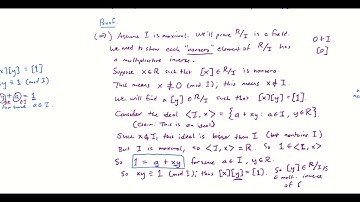 Proof.
(⇒) Assume I is maximal. We'll prove R/I is a field.
We need to show each "nonzero" element of R/I has
a multiplicative inverse.
0+I
[0]
Suppose x∈R such that [x]∈R/I is nonzero.
This means x ≢ 0 (mod I); this means x∉I.
We will find a [y]∈R/I such that [x][y]=[1].
Consider the ideal <I,x> = {a+xy : a∈I, y∈R}.
(Claim: This is an ideal)
Since x∉I, this ideal is larger than I (but contains I)
But I is maximal, so <I,x>=R. So 1∈<I,x>
So 1=a+xy for some a∈I, y∈R.
So xy≡1 (mod I); thus [x][y]=[1].
So [y]∈R/I is
a mult. inverse
of
x][y] = [1]
(mod I)
= 1
for some a∈I.